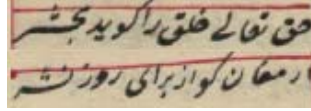 حق تعالے خلق را کوید بحشر
ارمغان کو از برای روز نشر